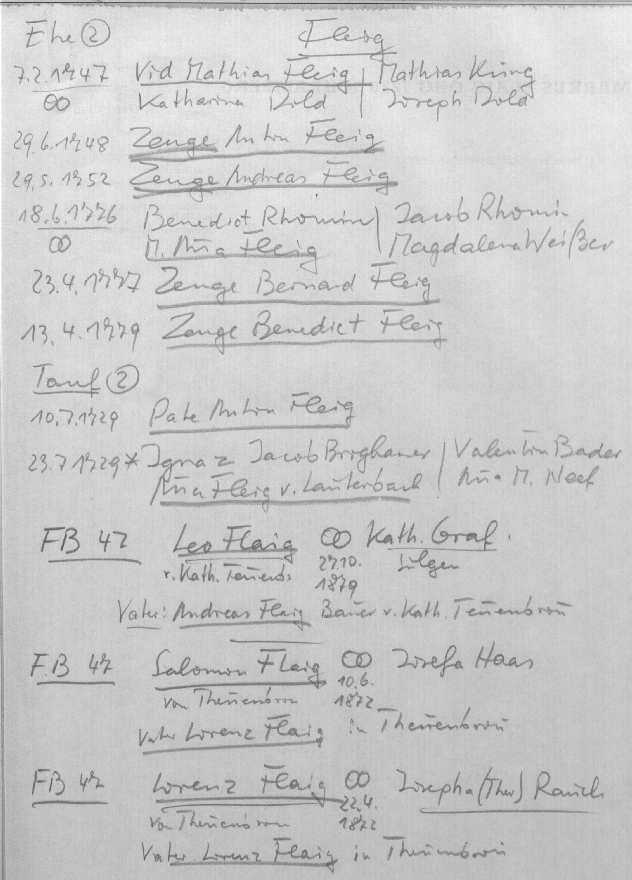 Ehe ② Fleig
7.2.1747 Vid Mathias Fleig | Mathias King
∞ Katharina Dold | Joseph Dold
29.6.1748 Zeuge Anton Fleig
29.5.1752 Zeuge Andreas Fleig
18.6.1776 Benedict Rhomin | Jacob Rhomin
∞ M. Aña Fleig | Magdalena Weißer
23.4.1777 Zeuge Bernard Fleig
13.4.1779 Zeuge Benedict Fleig
Tauf ②
10.7.1729 Pate Anton Fleig
23.7 1729 * Ignaz Jacob Borghauer | Valentin Bader
Aña Fleig v. Lauterbach | Aña M. Neef
FB 47 Leo Flaig ∞ Kath. Graf.
v. Kath. 27.10. Sulgen
1879
Vater: Andreas Flaig Bauer v. Kath. Teñenbroñ
F.B 47 Salomon Flaig ∞ Josefa Haas
von Theñenbron 10.6.
1872
Vater Lorenz Flaig in Theñenbroñ
FB 47 Lorenz Flaig ∞ Josepha (Ther) Rauch
von Theñenbron 22.4.
1872
Vater Lorenz Flaig in Theñenbroñ